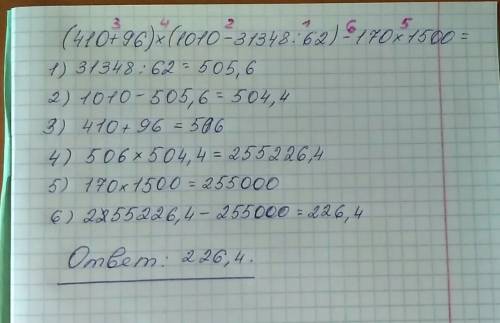 3 4 2 1 6 5
(410+96)×(1010-31348:62)-170×1500=
1) 31348:62=505,6
2) 1010-505,6=504,4
3) 410+96=506
4) 506×504,4=255226,4
5) 170×1500=255000
6) 255226,4-255000=226,4
Ответ: 226,4.